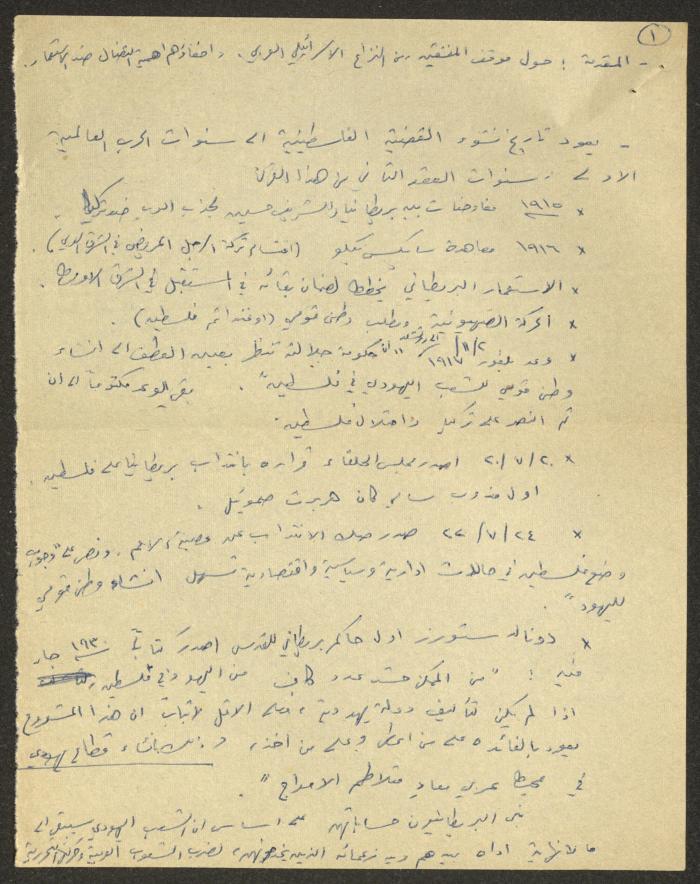 ١
- المقدمة : حول موقف المثقفين من النزاع الاسرائيلي العربي . واخفاؤهم اهمية النضال ضد الاستعمار .
- يعود تاريخ نشوء القضية الفلسطينية الى سنوات الحرب العالمية
الاولى ، سنوات العقد الثاني من هذا القرن
* ١٩١٥ مفاوضات بين بريطانيا والشريف حسين لجذب العرب ضد تركيا .
* ١٩١٦ معاهدة سايكس بيكو (اقتسام تركة الرجل المريض في الشرق العربي) .
* الاستعمار البريطاني يخطط لضمان بقائه في المستقبل في الشرق الاوسط .
* الحركة الصهيونية وبطلب وطن قومي (اوغندا ثم فلسطين) .
* وعد بلفور ٢/١١/١٩١٧ ان حكومة جلالته تنظر بعين العطف الى انشاء
وطن قومي للشعب اليهودي في فلسطين" . بقي الوعد مكتوماً الى ان
تم النصر على تركيا واحتلال فلسطين .
* ٢٠/٧/٢٠ اصدر مجلس الحلفاء قراره بانتداب بريطانيا على فلسطين .
اول مندوب سامي كان هربرت صموئيل .
* ٢٤/٧/٢٢ صدر صك الانتداب عن عصبة الامم . ونص على "وجوب
وضع فلسطين في حالات ادارية وسياسية واقتصادية تسهل انشاء وطن قومي
لليهود" .
* دونالد ستورز اول حاكم بريطاني للقدس اصدر كتاباً ١٩٣٠ جاء
فيه : "من الممكن حشد عدد كاف من اليهود في فلسطين
اذا لم يكن لتأليف دولة يهودية ، فعلى الاقل لاثبات ان هذا المشروع
يعود بالفائدة على من اعطى وعلى من اخذ ، و قطاع يهودي
في محيط عربي معاد متلاطم الامواج" .
البريطانيون حساباتهم على اساس ان الشعب اليهودي سيبقى الى
ما لا نهاية اداة بيدهم وبيد زعمائه الذين ، لضرب الشعوب العربية وحركتها التحررية